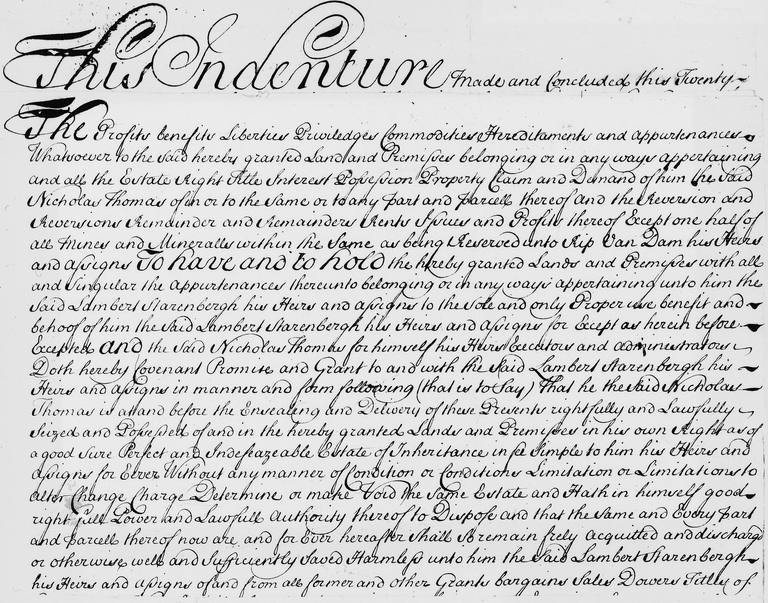 This Indenture Made and Concluded this Twenty
The Profits benefits Liberties Priviledges Commodities Hereditaments and appurtenances
Whatsoever to the said hereby granted Land and Premisses belonging or in any ways appertaining
and all the Estate Right Title Interest Possession Property Claim and Demand of him the Said
Nicholas Thomas of in or to the Same or to any part and parcell thereof and the Reversion and
Reversions Remainder and Remainders Rents Issues and Profits thereof Except one half of
all Mines and Mineralls within the Same as being Reserved unto Rip Van Dam his Heirs
and assigns To have and to hold the hereby granted Lands and Premisses with all
and Singular the Appurtenances thereunto belonging or in any ways appertaining unto him the
Said Lambert Starenbergh his Heirs and assigns to the Sole and only Proper use benefit and
behoof of him the Said Lambert Starenbergh his Heirs and assigns for Except as herein before
Excepted and the said Nicholas Thomas for himself his Heirs Executors and administrators
Doth hereby Covenant Promise and Grant to and with the Said Lambert Starenbergh his
Heirs and assigns in manner and form following (that is to Say) That he the Said Nicholas
Thomas is at and before the Ensealing and Delivery of these Presents rightfully and Lawfully
Seized and Possessed of and in the hereby granted Lands and Premisses in his own Right as of
a good Sure Perfect and Indefeazeable Estate of Inheritance in fee Simple to him his Heirs and
assigns for Ever Without any manner of Condition or Conditions Limitation or Limitations to
alter Change Charge Determine or make Void the Same Estate and Hath in himself good
right full Power and Lawfull Authority thereof to Dispose and that the Same and Every part
and parcell thereof now are and for Ever hereafter Shall So remain frely acquitted and discharg
or otherwise well and Sufficiently Saved Harmless unto him the Said Lambert Starenbergh
his Heirs and assigns of and from all former and other Grants bargains Sales Dowers Titles of